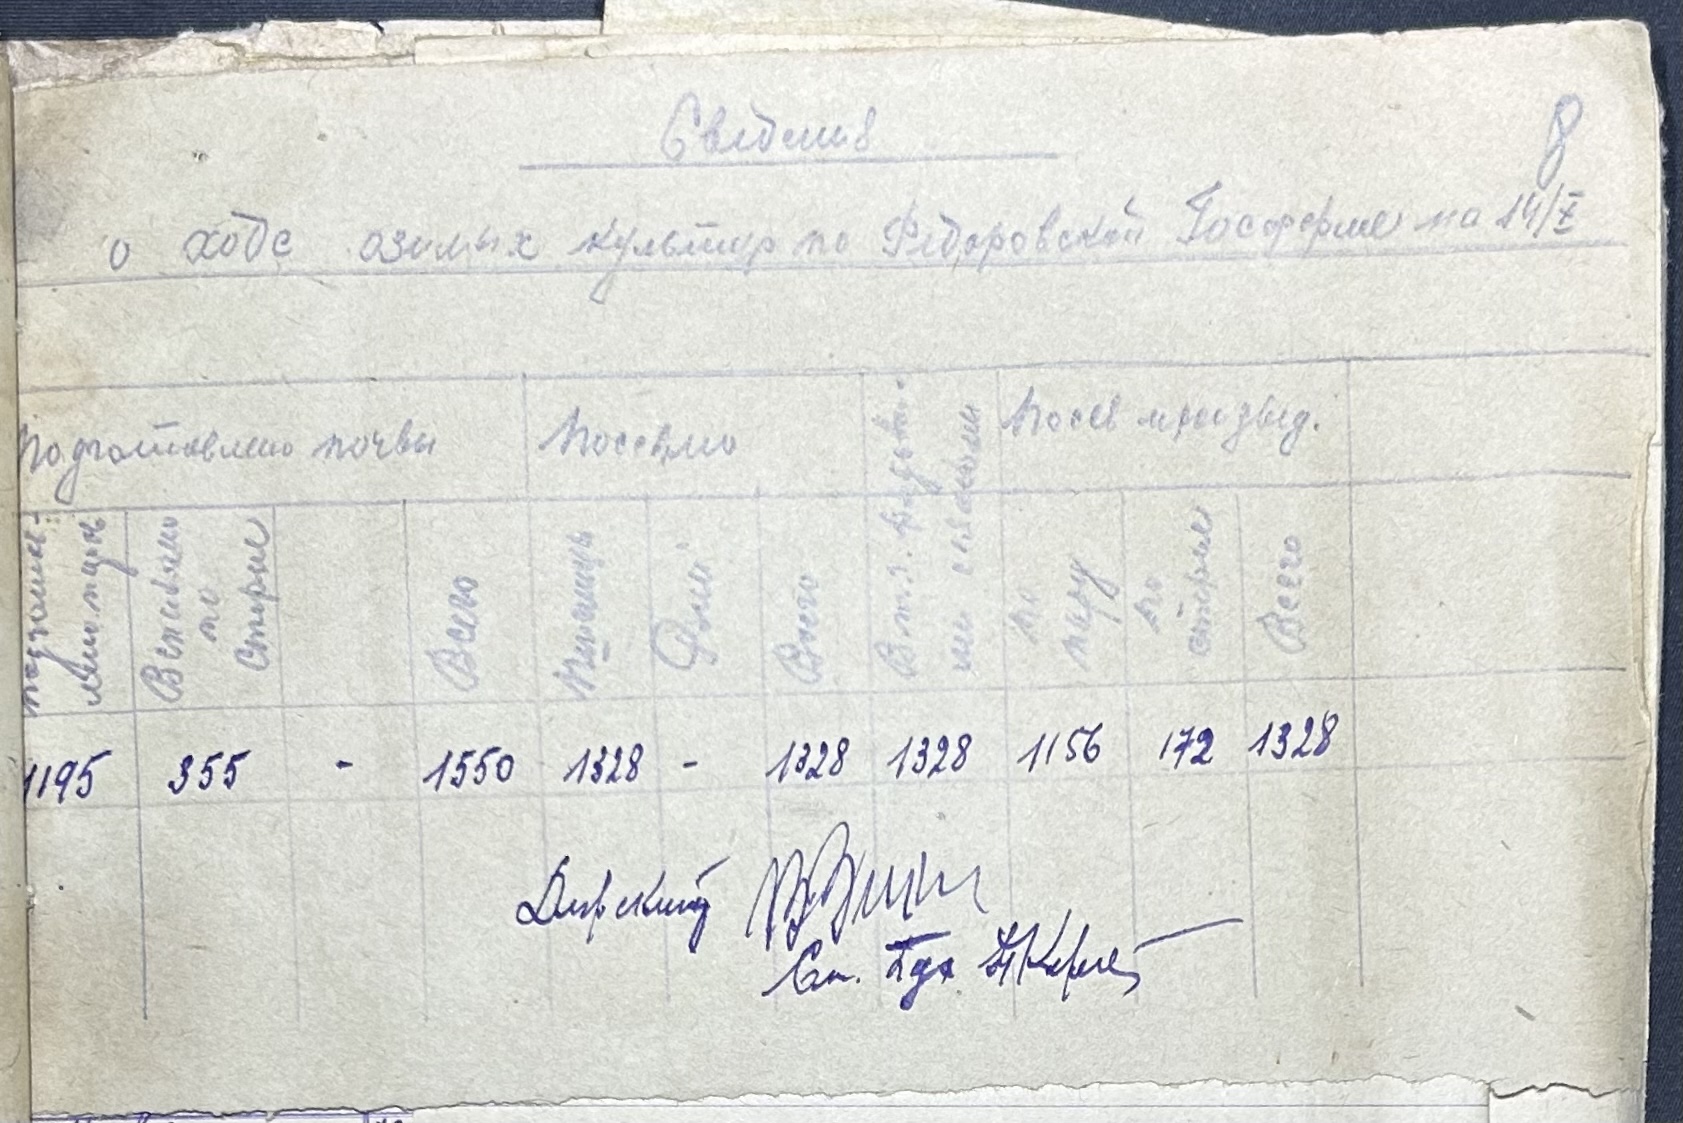 8
Сведения
о ходе озимых культур по Федоровской Госферме на 14/X
Подготовлено почвы
Посеяно
В т.ч.
Посев произвед.
Вспахано по стерне
Всего
Пшеницы
Ржи
Всего
по пару
по стерне
Всего
1195 355 - 1550 1328 - 1328 1328 1156 172 1328
Директор
Ст.